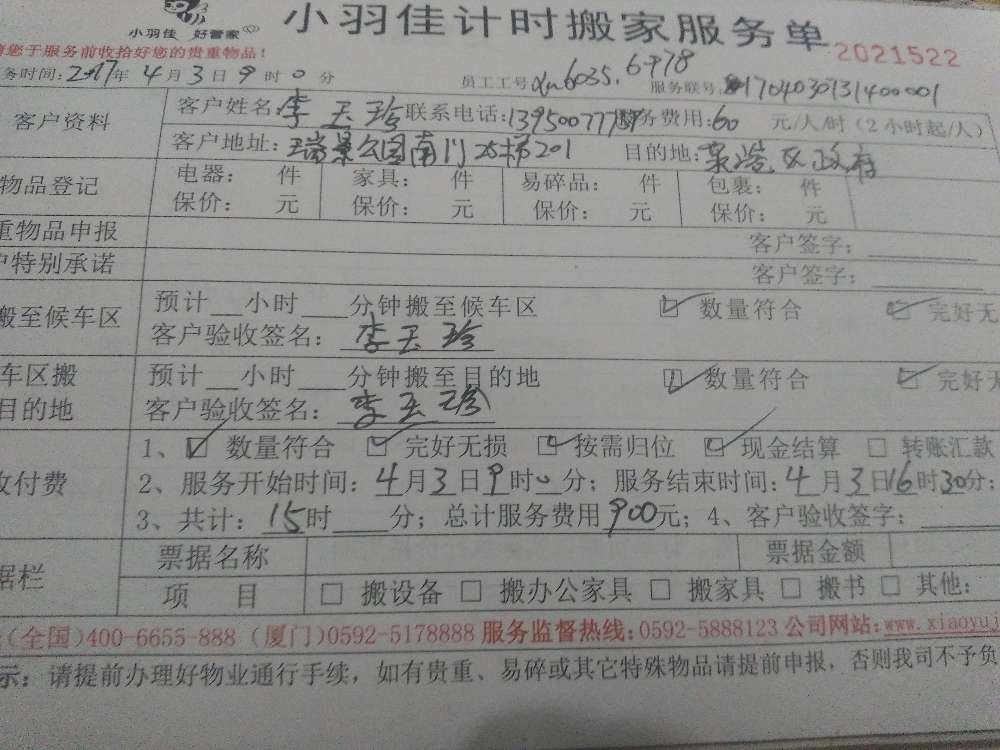 小羽佳 好管家
小羽佳计时搬家服务单
2021522
请您于服务前收拾好您的贵重物品！
务时间：2017年4月3日9时0分 员工工号 6035.6978 服务联号：170403073140001
客户资料 客户姓名：李玉珍 联系电话：1395007 务费用：60 元/人/时（2小时起/人）
客户地址：瑞景公园南门25梯201 目的地： 区政府
物品登记 电器： 件 家具： 件 易碎品： 件 包裹： 件
保价： 元 保价： 元 保价： 元 保价： 元
重物品申报 客户签字：
户特别承诺 客户签字：
搬至候车区 预计__小时___分钟搬至候车区 ☑ 数量符合 ☑ 完好无
客户验收签名：李玉珍
车区搬 预计__小时___分钟搬至目的地 ☑ 数量符合 ☑ 完好无
目的地 客户验收签名：李玉珍
收付费 1、☑ 数量符合 ☑ 完好无损 ☑ 按需归位 ☑ 现金结算 □ 转账汇款
2、服务开始时间：4月3日9时0分；服务结束时间：4月3日16时30分；
3、共计：15时___分；总计服务费用900元；4、客户验收签字：
据栏 票据名称 票据金额
项 目 □ 搬设备 □ 搬办公家具 □ 搬家具 □ 搬书 □ 其他：
(全国)400-6655-888 (厦门)0592-5178888 服务监督热线：0592-5888123 公司网站：www.xiaoyuj
示：请提前办理好物业通行手续，如有贵重、易碎或其它特殊物品请提前申报，否则我司不予负